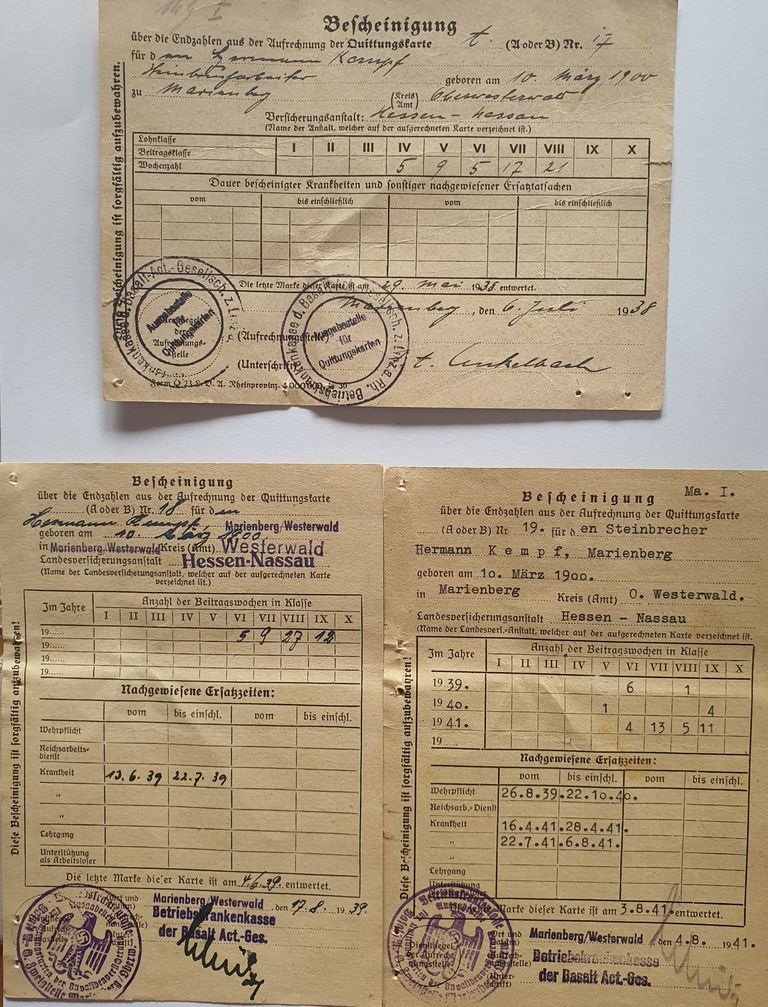 Bescheinigung
über die Endzahlen aus der Aufrechnung der Quittungskarte (A oder B) Nr. 17
für d en Hermann Kempf
Steinbrucharbeiter geboren am 10. März 1900
zu Marienberg (Kreis Amt) Oberwesterwald
Versicherungsanstalt: Hessen-Nassau
(Name der Anstalt, welcher auf der aufgerechneten Karte verzeichnet ist.)
Lohnklasse
Beitragsklasse I II III IV V VI VII VIII IX X
Wochenzahl 5 9 5 17 21
Dauer bescheinigter Krankheiten und sonstiger nachgewiesener Ersatztatsachen
vom bis einschließlich vom bis einschließlich
Die letzte Marke dieser Karte ist am 29. Mai 1938 entwertet.
Marienberg, den 6. Juli 1938
(Aufrechnungsstelle)
(Unterschrift)
Ausgabestelle für Quittungskarten
Ausgabestelle für Quittungskarten
Form O 73 L. V. A. Rheinprovinz.
Diese Bescheinigung ist sorgfältig aufzubewahren.
Bescheinigung
über die Endzahlen aus der Aufrechnung der Quittungskarte
(A oder B) Nr. 18 für d en
Hermann Kempf Marienberg/Westerwald
geboren am 10. März 1900.
in Marienberg/Westerwald Kreis (Amt) Westerwald
Landesversicherungsanstalt Hessen-Nassau
(Name der Landesversicherungsanstalt, welcher auf der aufgerechneten Karte
verzeichnet ist.)
Im Jahre Anzahl der Beitragswochen in Klasse
I II III IV V VI VII VIII IX X
19...... 5 9 27 12
19......
19......
19......
Nachgewiesene Ersatzzeiten:
vom bis einschl. vom bis einschl.
Wehrpflicht
Reichsarbeits-
dienst
Krankheit 13.6.39 22.7.39
"
"
Lehrgang
Unterstützung
als Arbeitsloser
Die letzte Marke dieser Karte ist am 4.6.39. entwertet.
Marienberg/Westerwald den 17.8. 1939
Betriebskrankenkasse
der Basalt Act.-Ges.
Diese Bescheinigung ist sorgfältig aufzubewahren!
Ma. I.
Bescheinigung
über die Endzahlen aus der Aufrechnung der Quittungskarte
(A oder B) Nr 19. für d en Steinbrecher
Hermann Kempf, Marienberg
geboren am 10. März 1900.
in Marienberg Kreis (Amt) O. Westerwald.
Landesversicherungsanstalt Hessen - Nassau
(Name der Landesvers.-Anstalt, welcher auf der aufgerechneten Karte verzeichnet ist.
Im Jahre Anzahl der Beitragswochen in Klasse
I II III IV V VI VII VIII IX X
19 39. 6 1
19 40. 1 4
19 41. 4 13 5 11
19
Nachgewiesene Ersatzzeiten:
vom bis einschl. vom bis einschl.
Wehrpflicht 26.8.39. 22.10.40.
Reichsarb.-Dienst
Krankheit 16.4.41. 28.4.41.
" 22.7.41. 6.8.41.
"
Lehrgang
Unterstützung
Marke dieser Karte ist am 3.8.41. entwertet.
Marienberg/Westerwald den 4.8. 1941.
Betriebskrankenkasse
der Basalt Act.-Ges.
Diese Bescheinigung ist sorgfältig aufzubewahren!